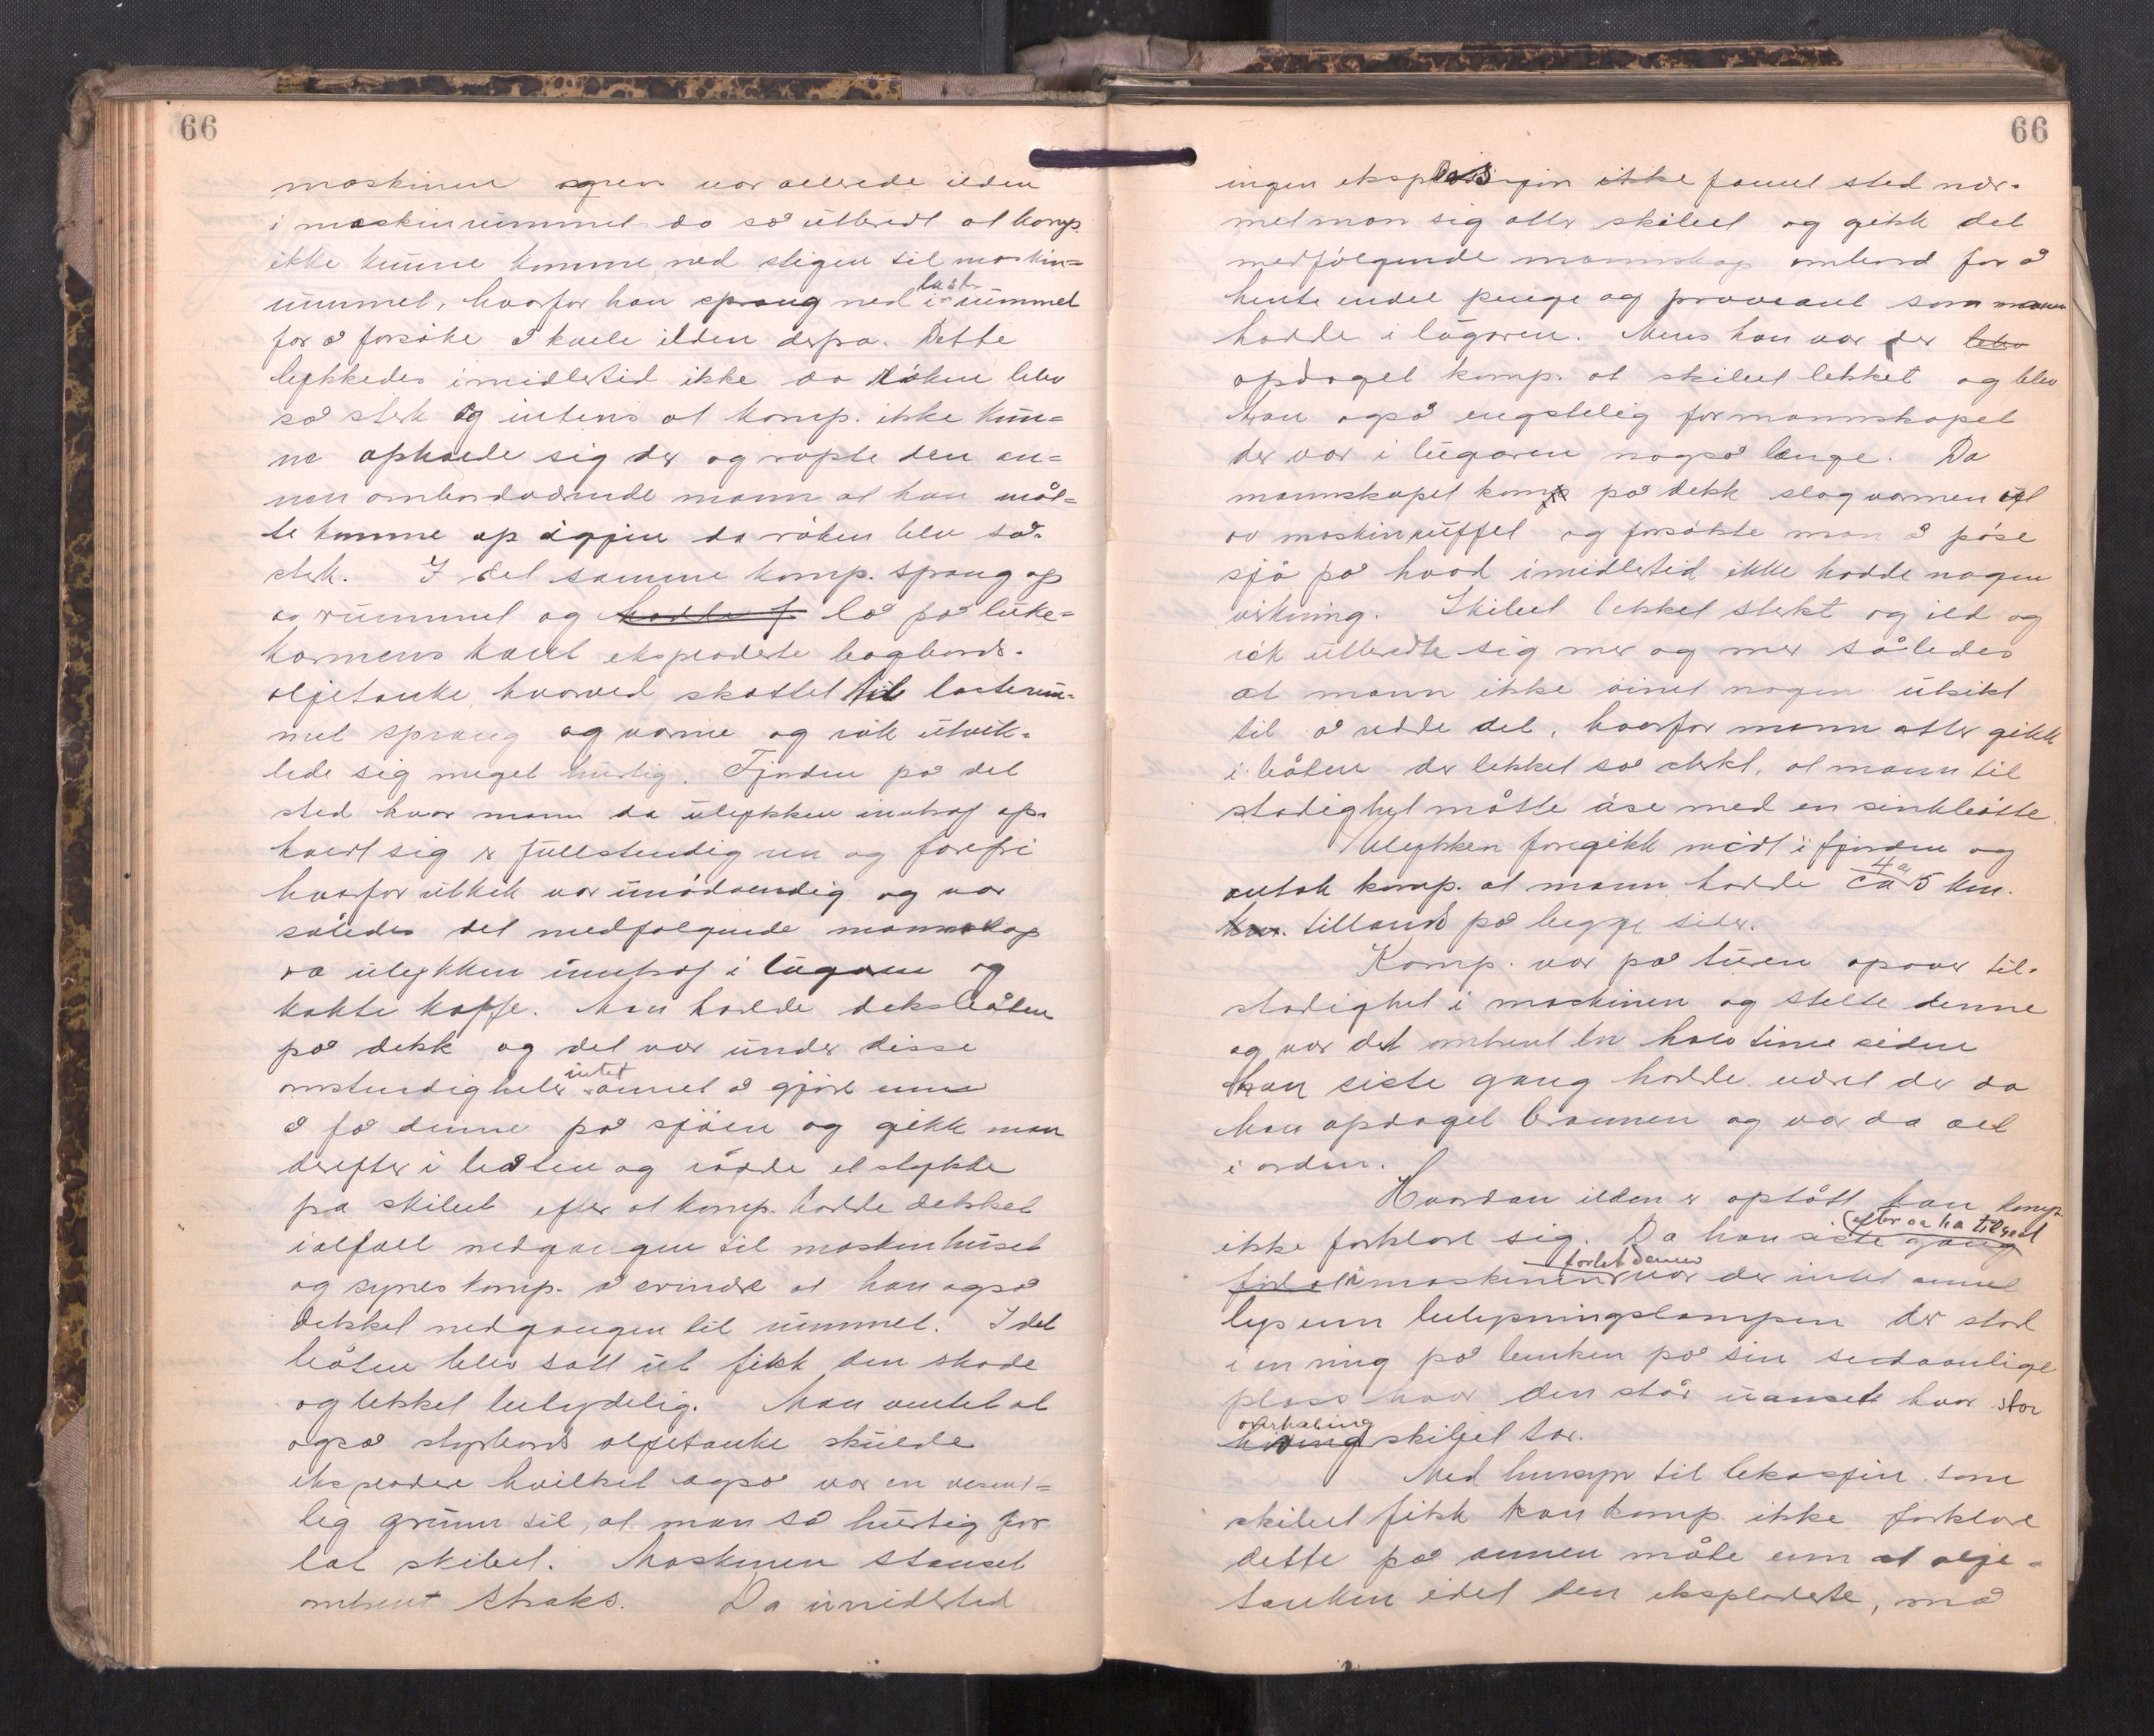 66
maskinen igjen var allerede ilden
i maskinrummet da så utbredt at komp.
ikke kunne komme ned stigen til maskin=
rummet, hvorfor han sprang ned i laste rummet
for å forsöke å kvele ilden derfra. Dette
lykkedes imidlertid ikke da röken blev
så sterk og intens at komp. ikke kun=
ne opholde sig der og ropte den an=
nen ombordværende mann at han mått=
te komme op igjen da röken blev så
sterk. I det samme komp. sprang op
av rummet og lå på luke=
karmens kant eksploderte bagbords
oljetanke, hvorved skottet til lasterum-
met sprang og varme og rök utvik-
lede sig meget hurtig. Fjorden på det
sted hvor mann da ulykken inntraf op-
holdt sig er fullstendig ren og farefri
hvorfor utkik var unödvendig og var
således det medfølgende mannskap
da ulykken inntraf i lugaren og
kokte kaffe. Man hadde deksbåten
på dekk og det var under disse
omstendigheter intet annet å gjöre enn
å få denne på sjöen og gikk man
derefter i båten og rodde et stykke
fra skibet efter at komp. hadde dekket
ialfall nedgangen til maskinhuset
og synes komp. å erindre at han også
dekket nedgangen til rummet. I det
båten blev satt ut fikk den skade
og lekket betydelig. Man ventet at
også styrbords oljetanke skulde
eksplodere hvilket også var en vesent=
lig grunn til, at man så hurtig for
lot skibet. Maskinen stanset
omtrent straks. Da imidlertid
66
ingen eksplosjon ikke fannt sted nær-
met man sig atter skibet og gikk det
medfølgende mannskap ombord for å
hente endel penge og proviant som mann
hadde i lugaren. Mens han var der blev
opdaget komp. at skibet lekket og blev
han også engstelig for mannskapet
der var i lugaren også lenge. Da
mannskapet kom på dekk slog varmen ut
av maskinruffet og forsökte man å pöse
sjö på hvad imidlertid ikke hadde nogen
virkning. Skibet lekket sterkt og ild og
rök utbredte sig mer og mer således
at mann ikke öinet nogen utsikt
til å redde det, hvorfor mann atter gikk
i båten der lekket så sterkt, at mann til
stadighet måtte äse med en sinkbötte.
Ulykken foregikk midt i fjorden og
antok komp. at mann hadde ca 4 a 5 km.
km. tillands på begge sider.
Komp. var på turen opover til-
stadighet i maskinen og stelte denne
og var det omtrent en halv time siden
han siste gang hadde været der da
han opdaget brannen og var da alt
i orden.
Hvordan ilden er opstått kan komp.
ikke forklare sig. Da han siste gang (efter at ha tilset
maskinen forlot denne var der intet annet
lys enn belysningslampen der stod
i en ring på benken på sin sedvanlige
plass hvor den står uanset hvor stor
overhaling skibet tar.
Med hensyn til lekasjen som
skibet fikk kan komp. ikke forklare
dette på annen måte enn at olje=
tanken idet den eksploderte, må